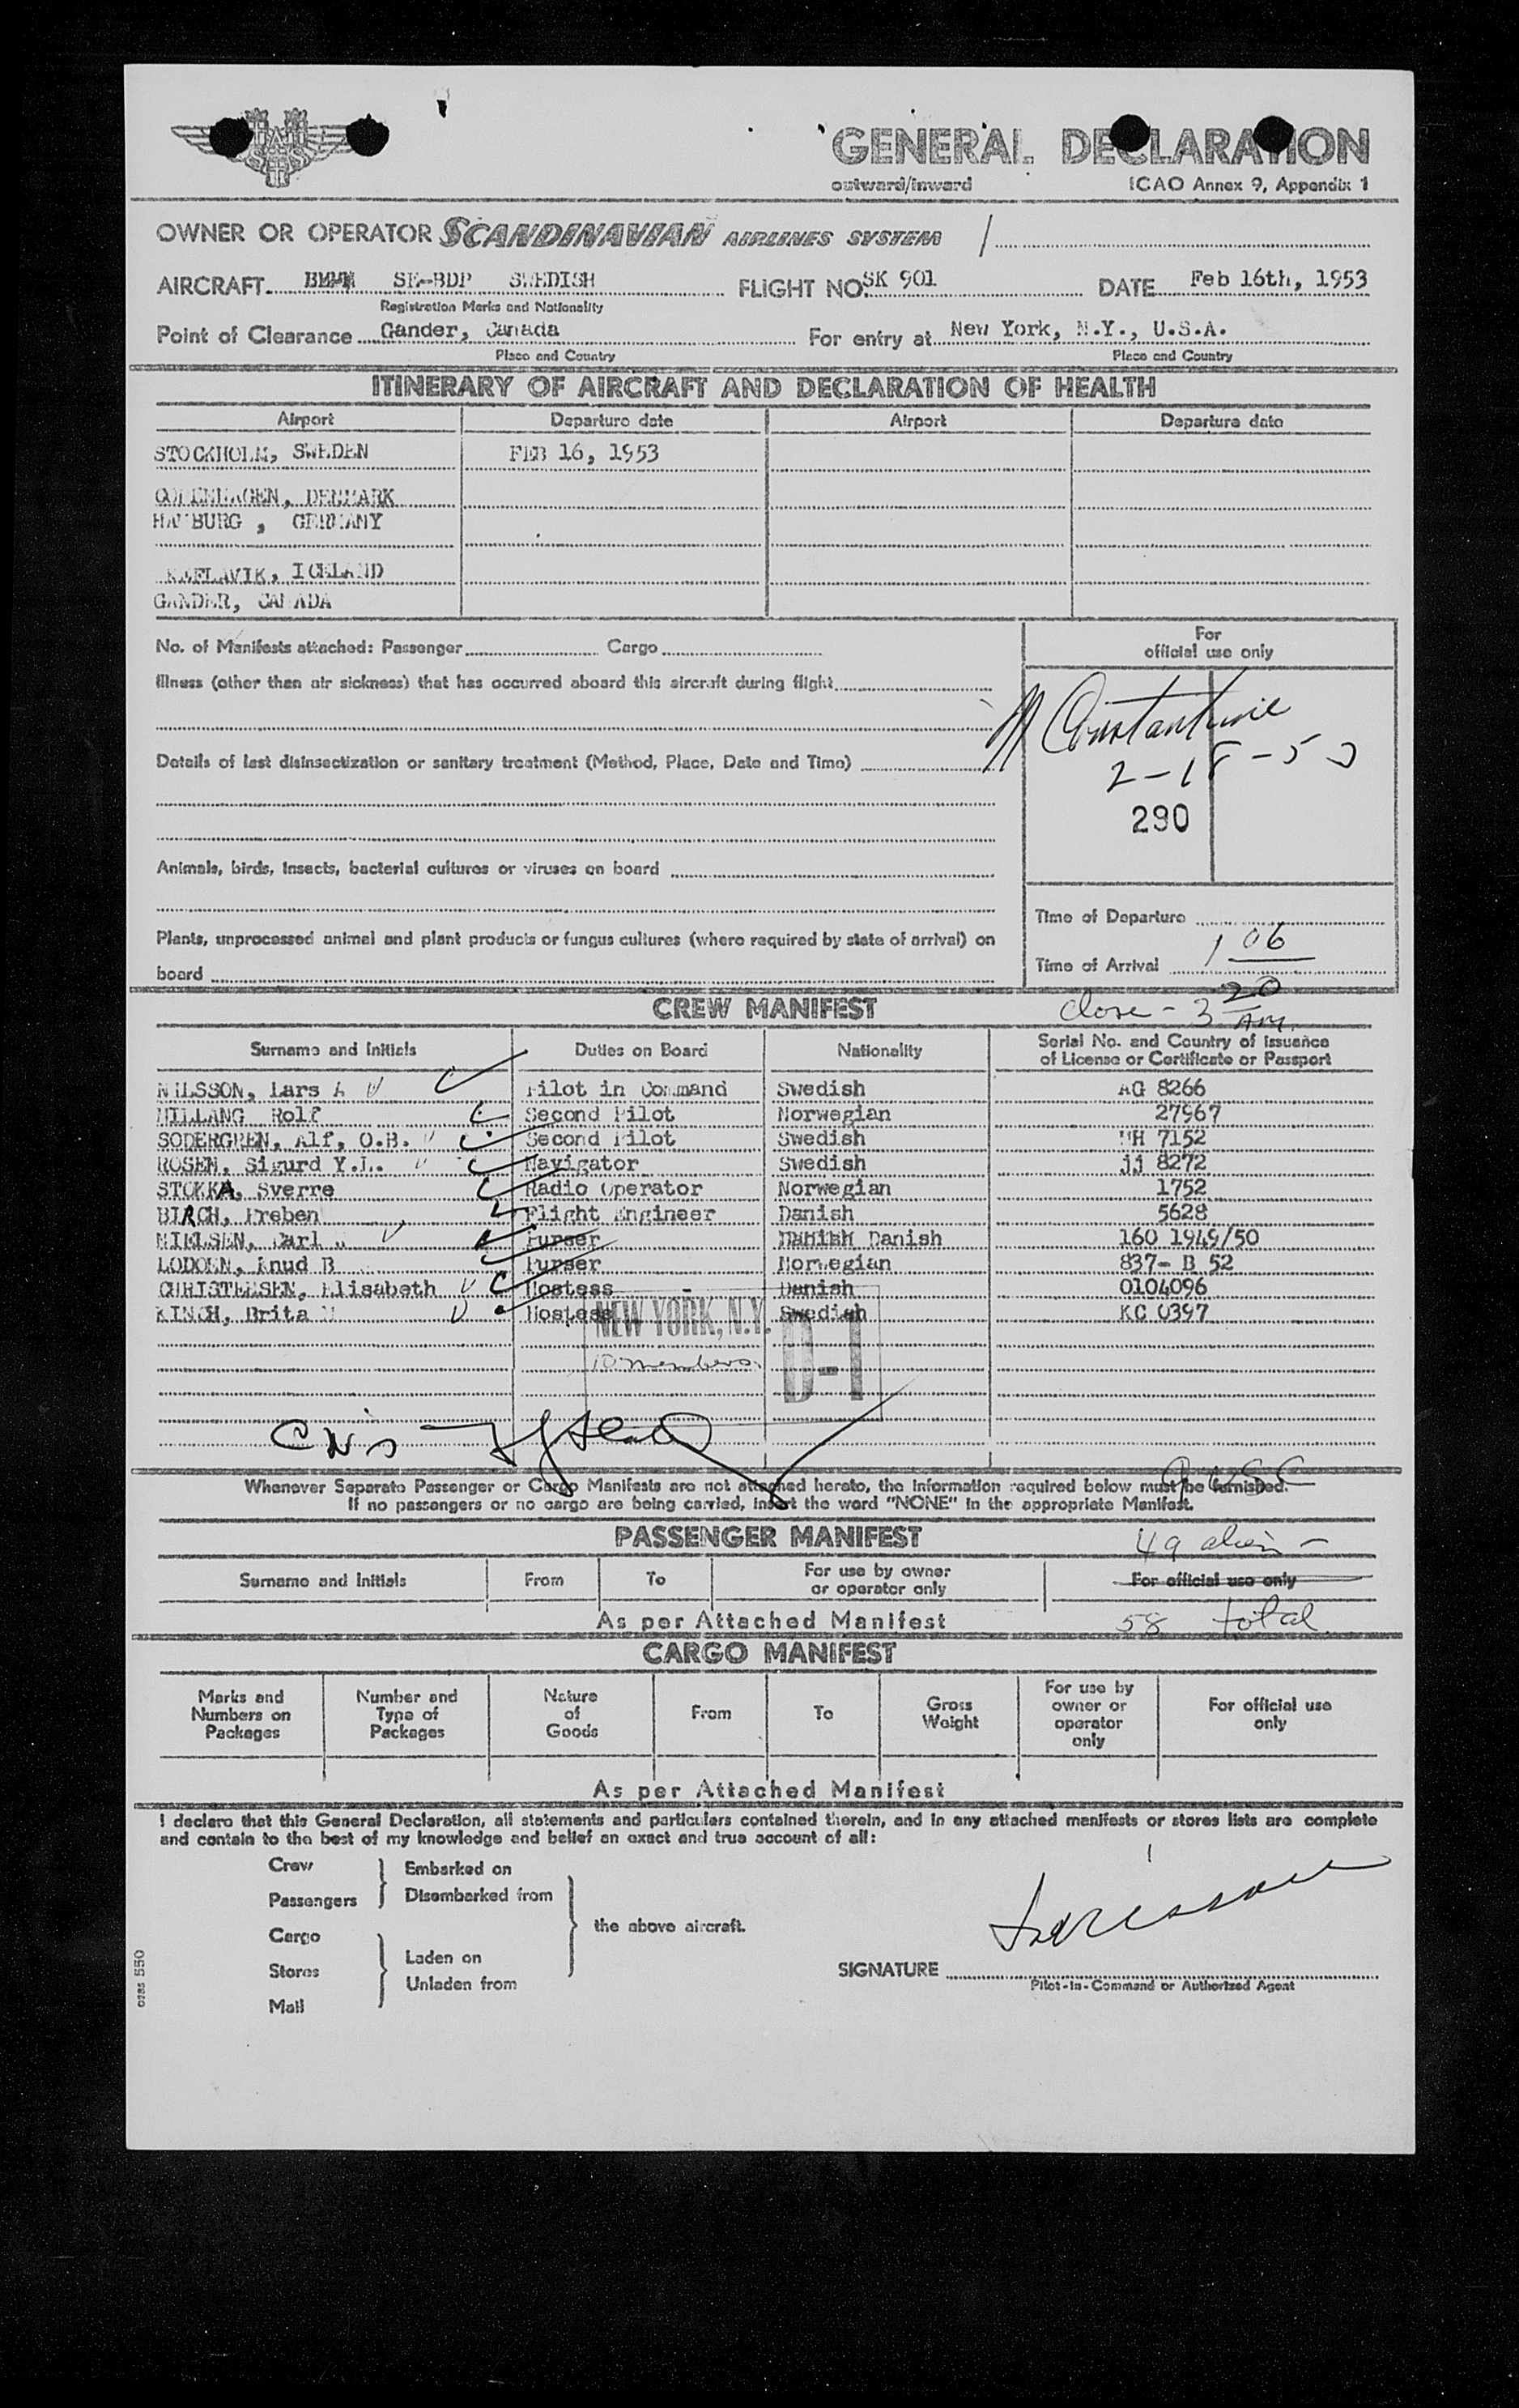 GENERAL DECLARATION
outward/inward ICAO Annex 9, Appendix 1
OWNER OR OPERATOR SCANDINAVIAN AIRLINES SYSTEM /
AIRCRAFT SE-BDP SWEDISH FLIGHT NO. SK 901 DATE Feb 16th, 1953
Registration Marks and Nationality
Point of Clearance Gander, Canada For entry at New York, N.Y., U.S.A.
Place and Country Place and Country
ITINERARY OF AIRCRAFT AND DECLARATION OF HEALTH
Airport Departure date Airport Departure date
STOCKHOLM, SWEDEN FEB 16, 1953
COPENHAGEN, DENMARK
HAMBURG , GERMANY
KEFLAVIK, ICELAND
GANDER, CANADA
No. of Manifests attached: Passenger Cargo
For
official use only
Illness (other than air sickness) that has occurred aboard this aircraft during flight
M Constantine
2-18-53
Details of last disinsectization or sanitary treatment (Method, Place, Date and Time)
290
Animals, birds, insects, bacterial cultures or viruses on board
Time of Departure
Plants, unprocessed animal and plant products or fungus cultures (where required by state of arrival) on
board
Time of Arrival 1 06
CREW MANIFEST close - 3 20 AM.
Surname and Initials Duties on Board Nationality Serial No. and Country of Issuance
of License or Certificate or Passport
NILSSON, Lars A Pilot in Command Swedish AG 8266
MILLANG Rolf Second Pilot Norwegian 27967
SODERGREN, Alf, O.B. Second Pilot Swedish 7152
ROSEN, Sigurd Y.L. Navigator Swedish jj 8272
STOKKA, Sverre Radio Operator Norwegian 1752
BIRCH, Preben Flight Engineer Danish 5628
NIELSEN, Carl Purser Danish 160 1949/50
LODOEN, Knud B Purser Norwegian 837- B 52
CHRISTENSEN, Elisabeth Hostess Danish 0104096
KINCH, Brita Hostess Swedish KC 0397
NEW YORK, N.Y. D-1
10 members
9 USC
Whenever Separate Passenger or Cargo Manifests are not attached hereto, the information required below must be furnished.
If no passengers or no cargo are being carried, insert the word "NONE" in the appropriate Manifest.
PASSENGER MANIFEST 49 alien -
Surname and Initials From To For use by owner
or operator only For official use only
As per Attached Manifest 58 total
CARGO MANIFEST
Marks and
Numbers on
Packages Number and
Type of
Packages Nature
of
Goods From To Gross
Weight For use by
owner or
operator
only For official use
only
As per Attached Manifest
I declare that this General Declaration, all statements and particulars contained therein, and in any attached manifests or stores lists are complete
and contain to the best of my knowledge and belief an exact and true account of all:
Crew Embarked on
Passengers Disembarked from
the above aircraft.
Cargo
Laden on
Stores
Unladen from
Mail
SIGNATURE
Pilot-in-Command or Authorized Agent